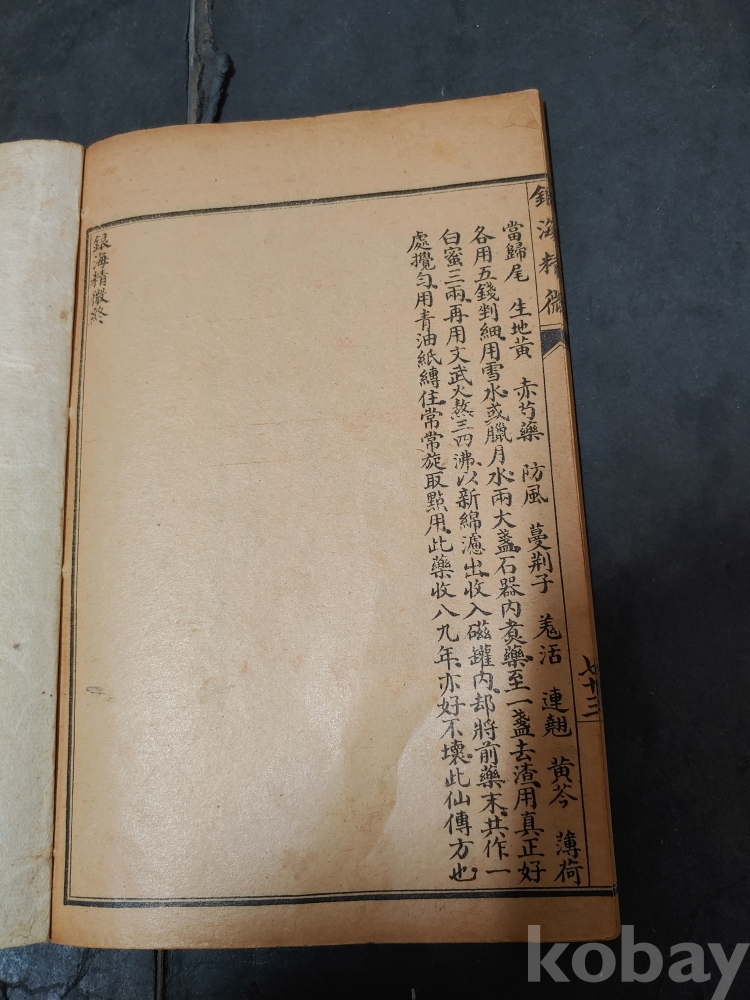 銀海精微
七十三
當歸尾 生地黃 赤芍藥 防風 蔓荆子 羗活 連翹 黄芩 薄荷
各用五錢剉細、用雪水、或臘月水兩大盞、石器內煑藥、至一盞去渣、用真正好
白蜜三兩、再用文武火熬三四沸、以新綿濾出、收入磁罐內、却將前藥末、共作一
處攪勻、用青油紙縛住、常常旋取點用、此藥收八九年、亦好不壞、此仙傳方也
銀海精微終
kobay